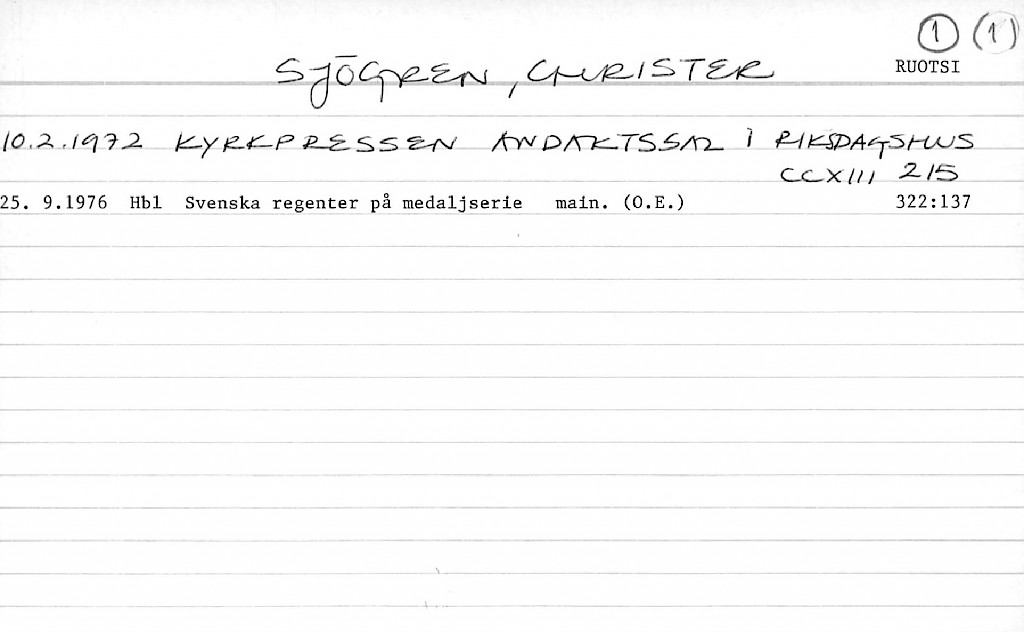 1 (1)
SJÖGREN, CHRISTER
RUOTSI
10.2.1972 KYRKPRESSEN ANDAKTSSAL I RIKSDAGSHUS
CCXIII 215
25. 9.1976 Hbl Svenska regenter på medaljserie main. (O.E.) 322:137